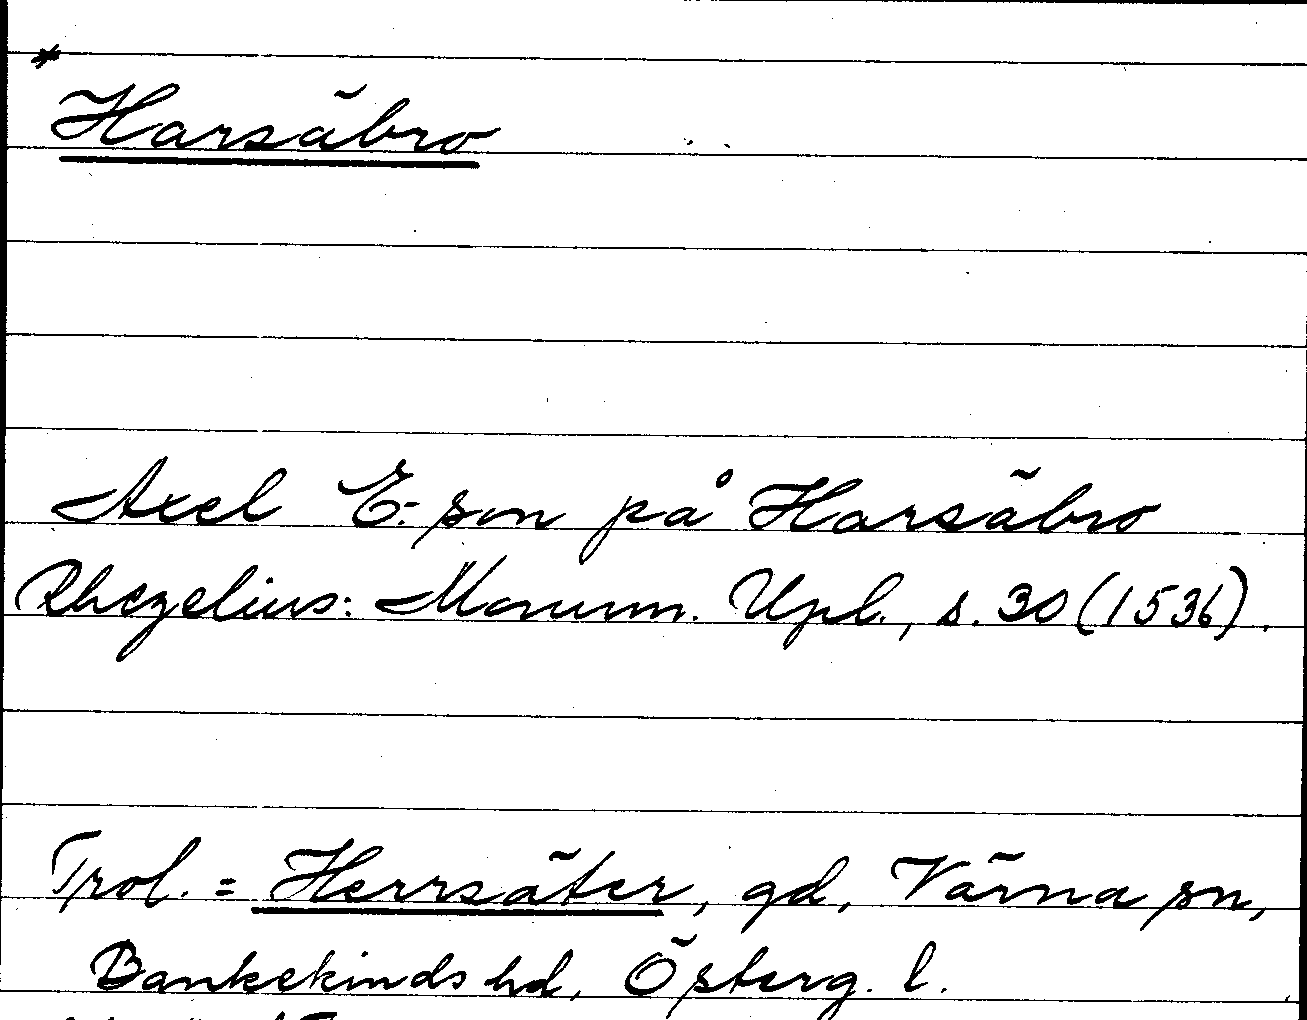 *
Harsäbro
Axel E:son på Harsäbro
Rhezelius: Monum. Upl., s. 30 (1536).
Trol. = Herrsäter, gd, Värna sn,
Bankekinds hd, Österg. l.